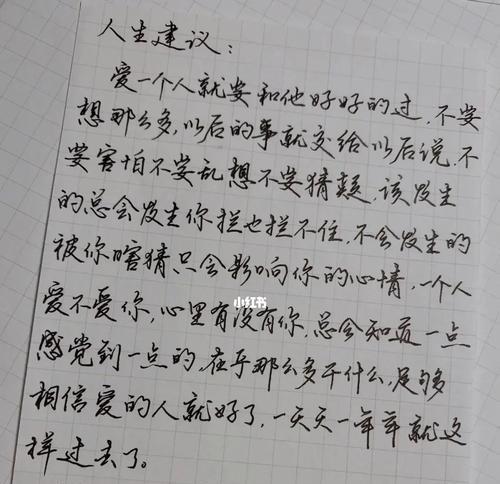 人生建议：
爱一个人就要和他好好的过，不要
想那么多，以后的事就交给以后说，不
要害怕不要乱想不要猜疑，该发生
的总会发生你拦也拦不住，不会发生的
被你瞎猜只会影响你的心情，一个人
小红书
爱不爱你，心里有没有你，总会知道一点
感觉到一点的，在乎那么多干什么，足够
相信爱的人就好了，一天天一年年就这
样过去了。